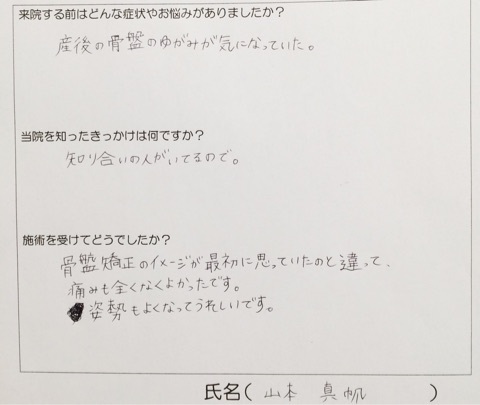 来院する前はどんな症状やお悩みがありましたか？
産後の骨盤のゆがみが気になっていた。
当院を知ったきっかけは何ですか？
知り合いの人がいてるので。
施術を受けてどうでしたか？
骨盤矯正のイメージが最初に思っていたのと違って、
痛みも全くなくよかったです。
姿勢もよくなってうれしいです。
氏名( 山本 真帆 )